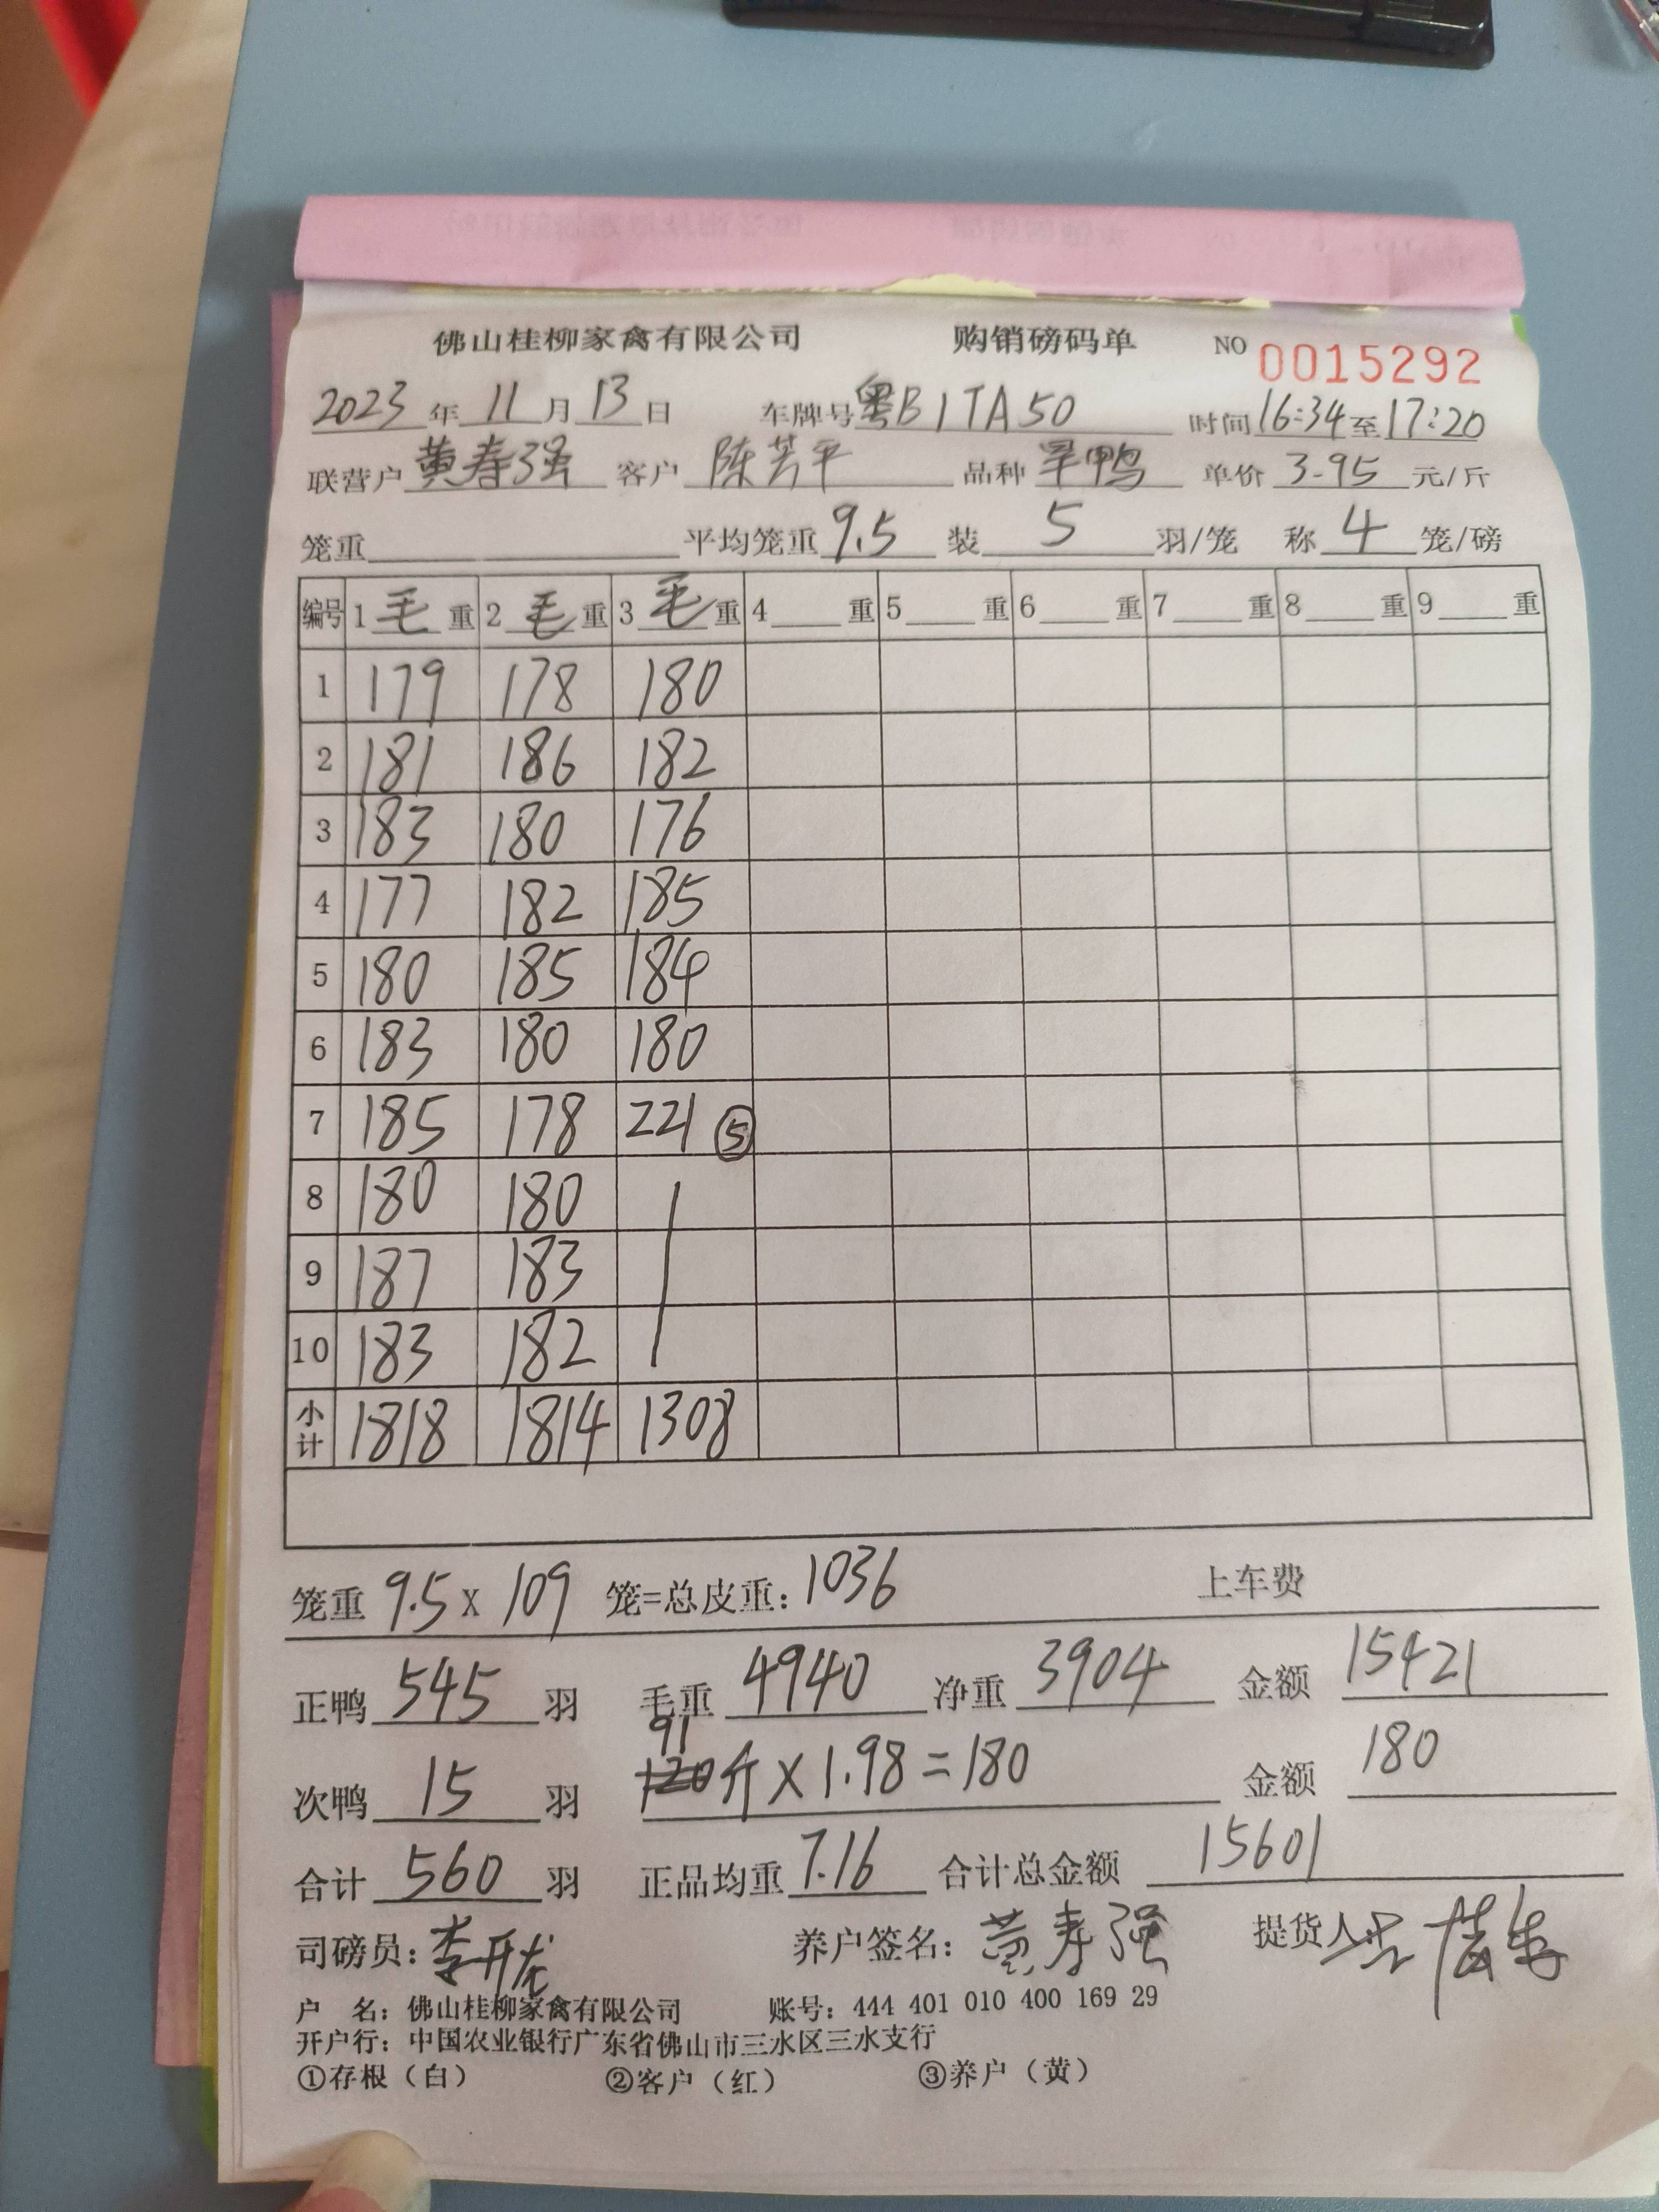 佛山桂柳家禽有限公司 购销磅码单 NO 0015292
2023年11月13日 车牌号粤B1TA50 时间16:34至17:20
联营户黄寿强 客户陈芳平 品种 单价3.95元/斤
笼重 平均笼重9.5 装5羽/笼 称4笼/磅
编号 1毛重 2毛重 3毛重 4重 5重 6重 7重 8重 9重
1 179 178 180
2 181 186 182
3 183 180 176
4 177 182 185
5 180 185 184
6 183 180 180
7 185 178 221 ⑤
8 180 180
9 187 183
10 183 182
小计 1818 1814 1308
笼重9.5X109笼=总皮重:1036 上车费
正鸭545羽 毛重4940 净重3904 金额15421
次鸭15羽 91斤×1.98=180 金额180
合计560羽 正品均重7.16 合计总金额15601
司磅员:李开龙 养户签名:黄寿强 提货人:
户 名:佛山桂柳家禽有限公司 账号:444 401 010 400 169 29
开户行:中国农业银行广东省佛山市三水区三水支行
①存根(白) ②客户(红) ③养户(黄)